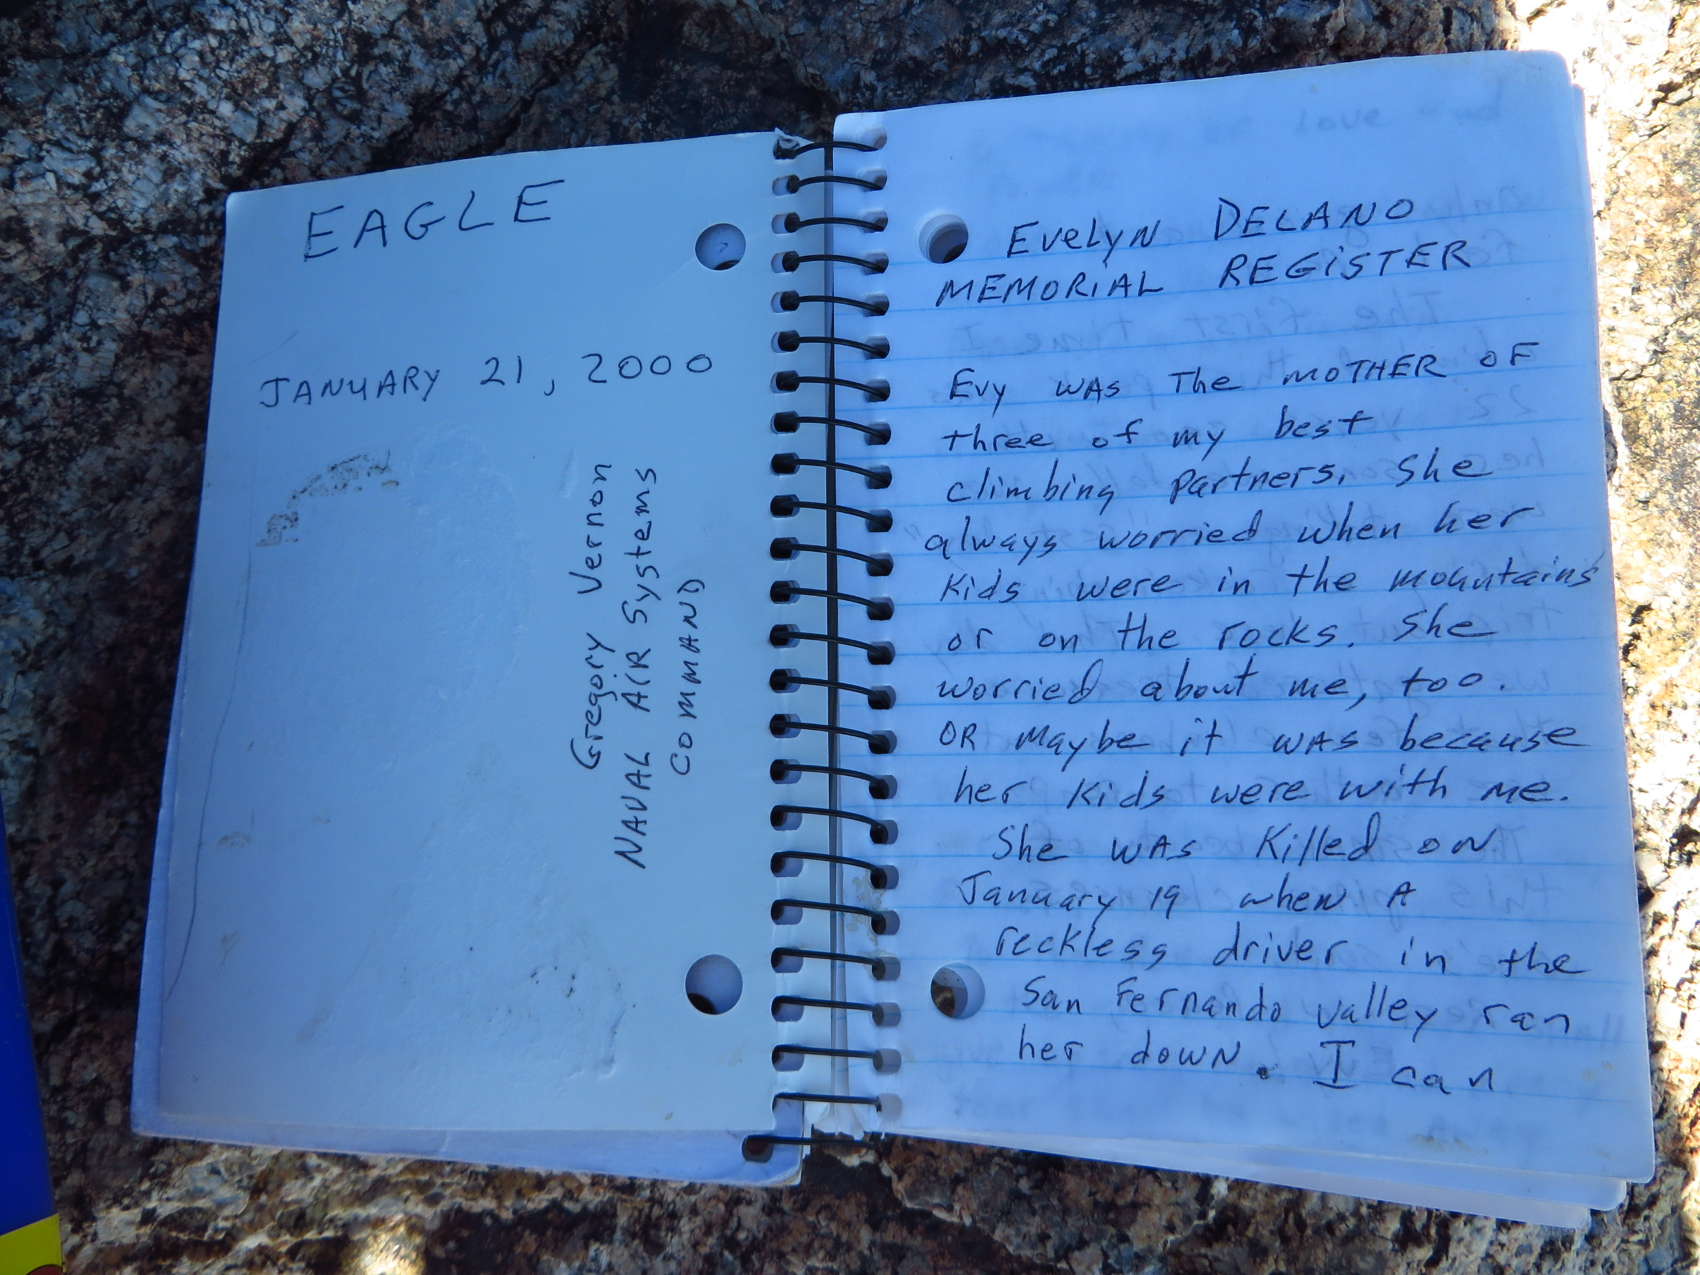 EAGLE
JANUARY 21, 2000
Gregory Vernon
NAVAL AIR Systems
COMMAND
Evelyn DELANO
MEMORIAL REGISTER
Evy was The MOTHER OF
three of my best
climbing partners. She
always worried when her
Kids were in the mountains
or on the rocks. She
worried about me, too.
OR Maybe it was because
her Kids were with me.
She was Killed on
January 19 when A
reckless driver in the
San Fernando valley ran
her down. I can